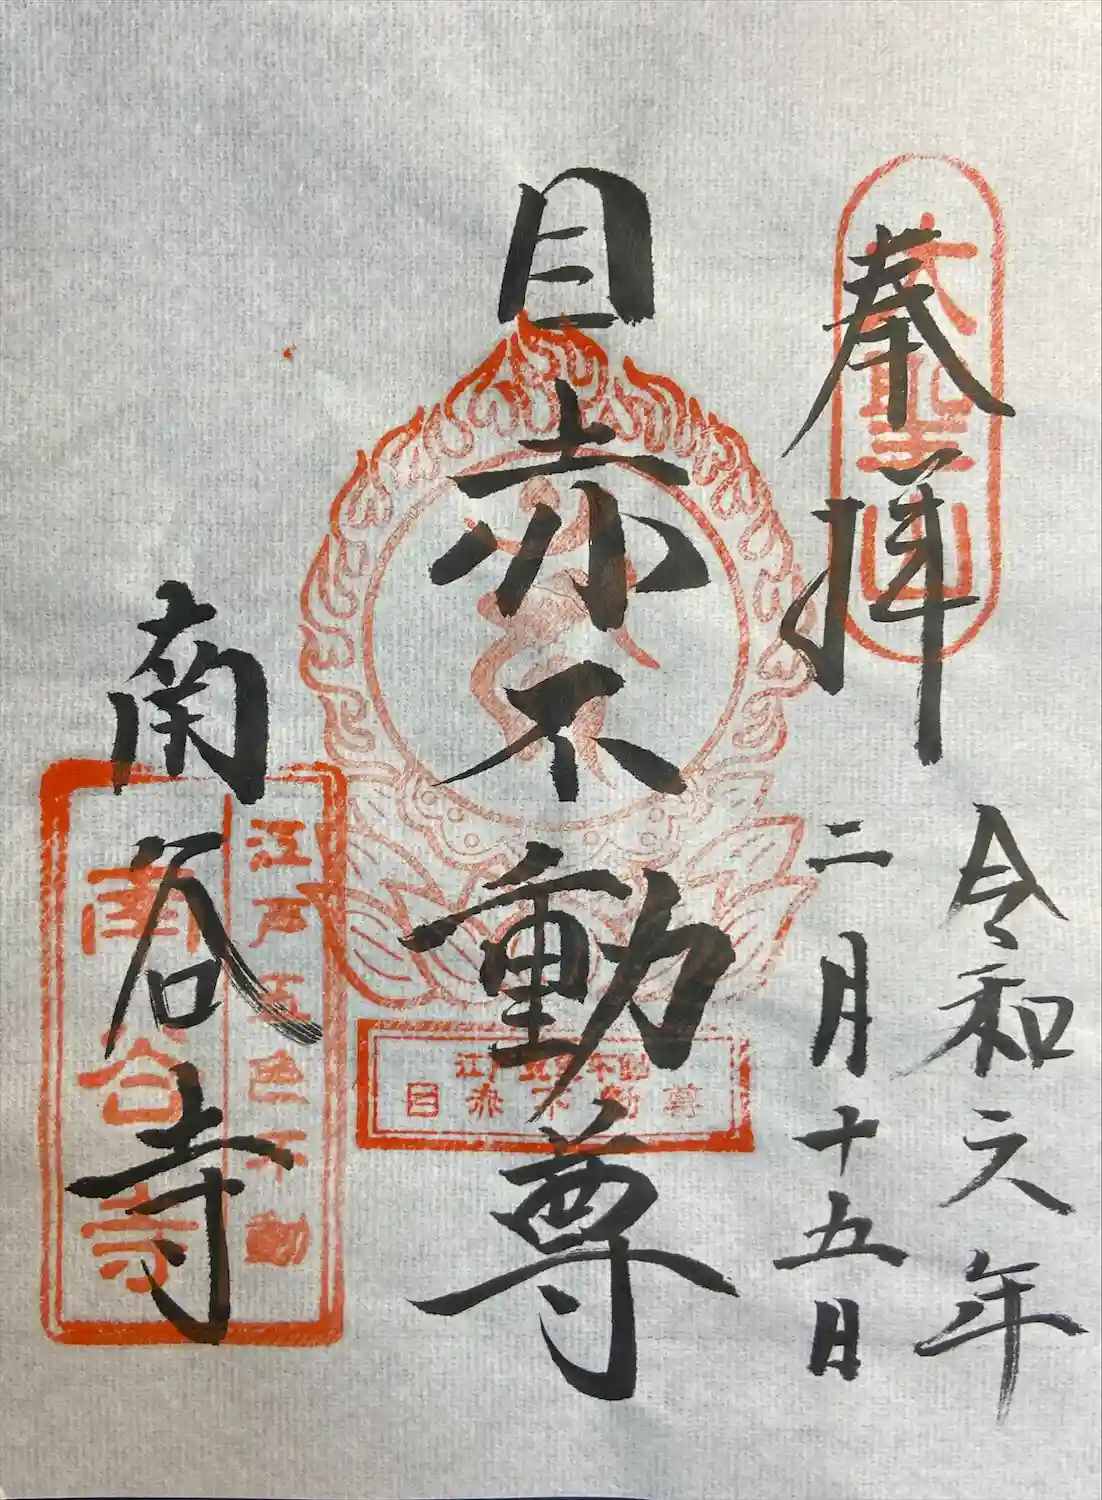 奉拝
大聖山
令和六年
二月十五日
目赤不動尊
江戸五色不動
目赤不動尊
南谷寺
江戸五色不動
南谷寺